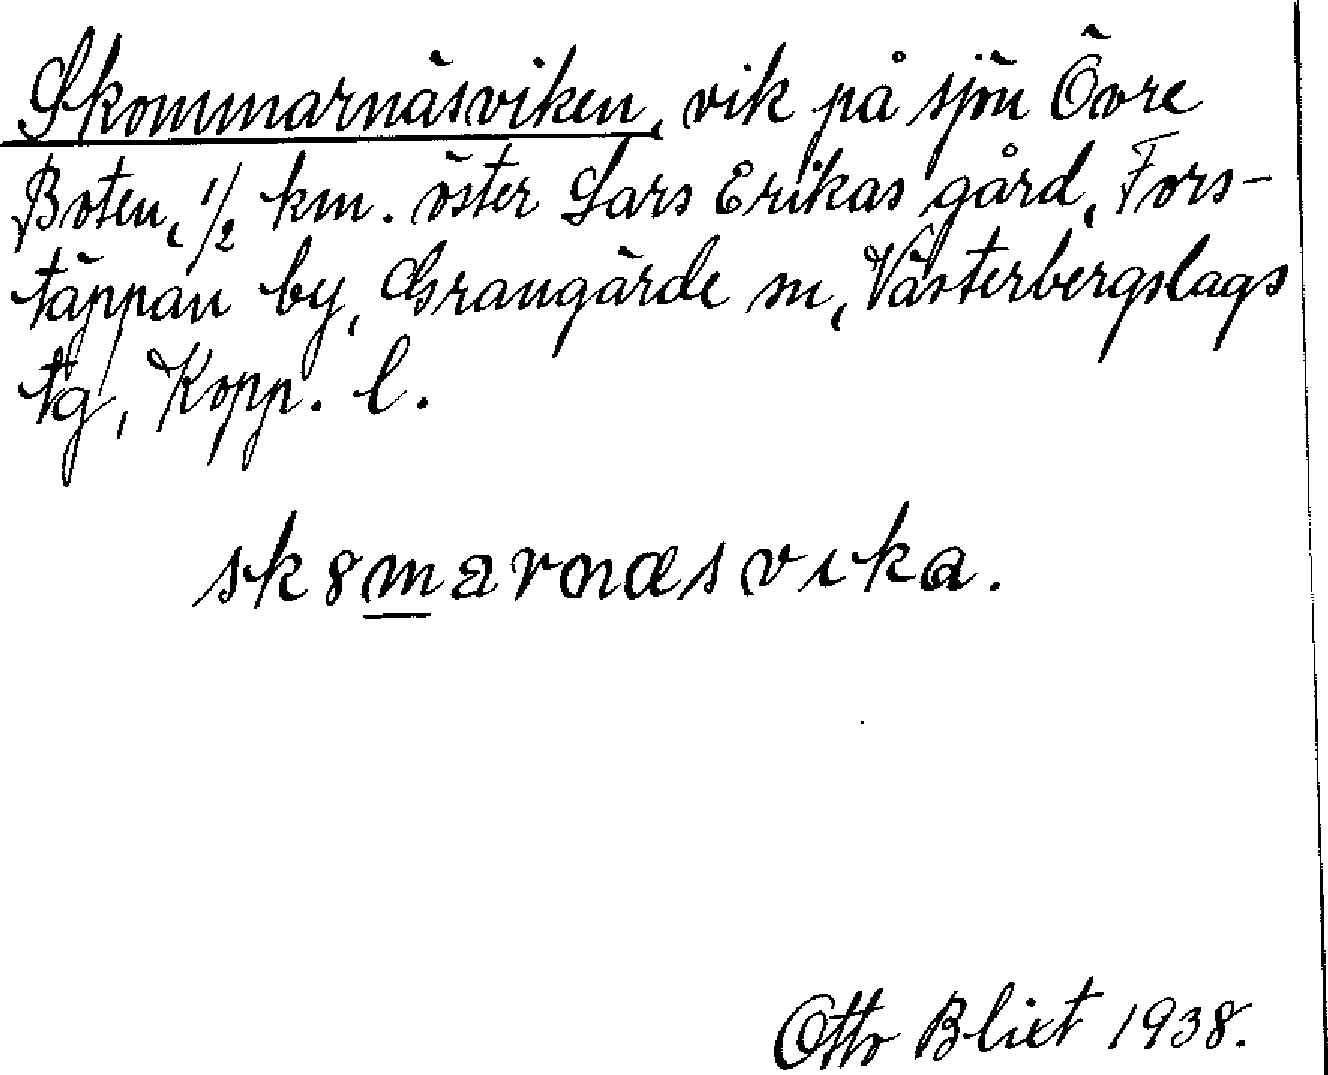 Skommarnäsviken, vik på sjön Övre
Boten, 1/2 km. öster Lars Erikas gård, Fors-
täppan by, Grangärde sn, Västerbergslags
tg, Kopp. l.
sk8marnæsvıka.
Otto Blixt 1938.